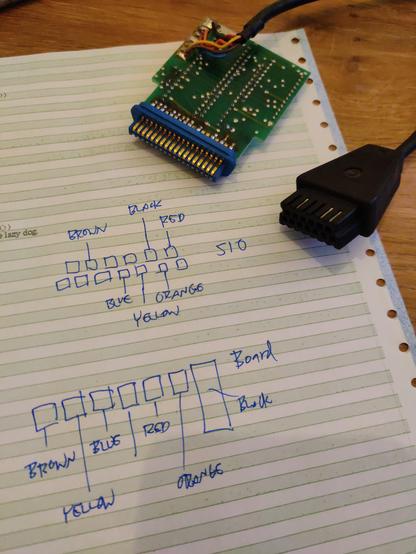 lazy dog.
BLACK
BROWN RED
SIO
BLUE ORANGE
YELLOW
Board
Black
BROWN BLUE RED
YELLOW ORANGE